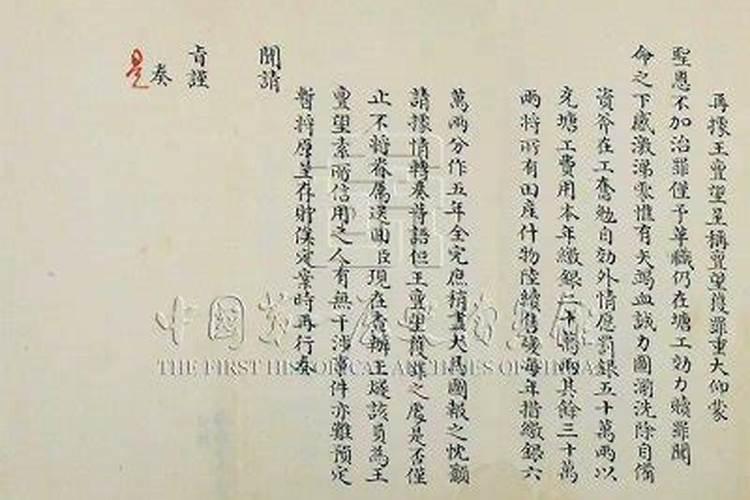 再據王亶望呈稱亶望獲罪重大仰蒙
聖恩不加治罪僅予革職仍在塘工効力贖罪聞
命之下感激涕零惟有矢竭血誠力圖湔洗除自備
資斧在工奮勉自効外情愿罰銀五十萬兩以
充塘工費用本年繳銀二十萬兩其餘三十萬
兩將所有田産什物陸續售變每年措繳銀六
萬兩分作五年全完庶稍盡犬馬圖報之忱籲
請據情轉奏等語但王亶望獲罪之處是否僅
止不將眷属送回臣現在查辦王燧該員為王
亶望素所信用之人有無干涉事件亦難預定
暫將原呈存貯俟定案時再行奏
聞請
旨謹
奏
是
THE FIRST HISTORICAL ARCHIVES OF CHINA